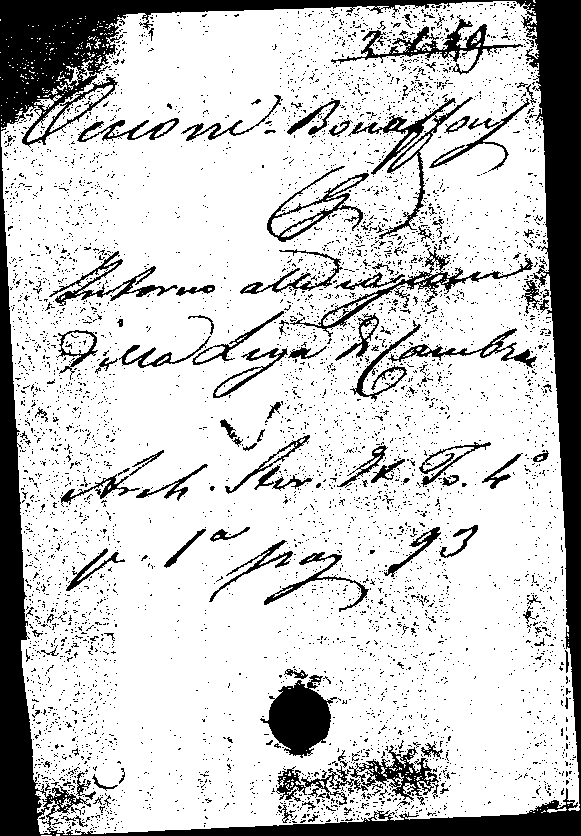 Occioni-Bonaffons
G
Intorno alle cagioni
della Lega di Cambrai
Arch. Stor. It. To. 4°
p. 1ª pag. 93